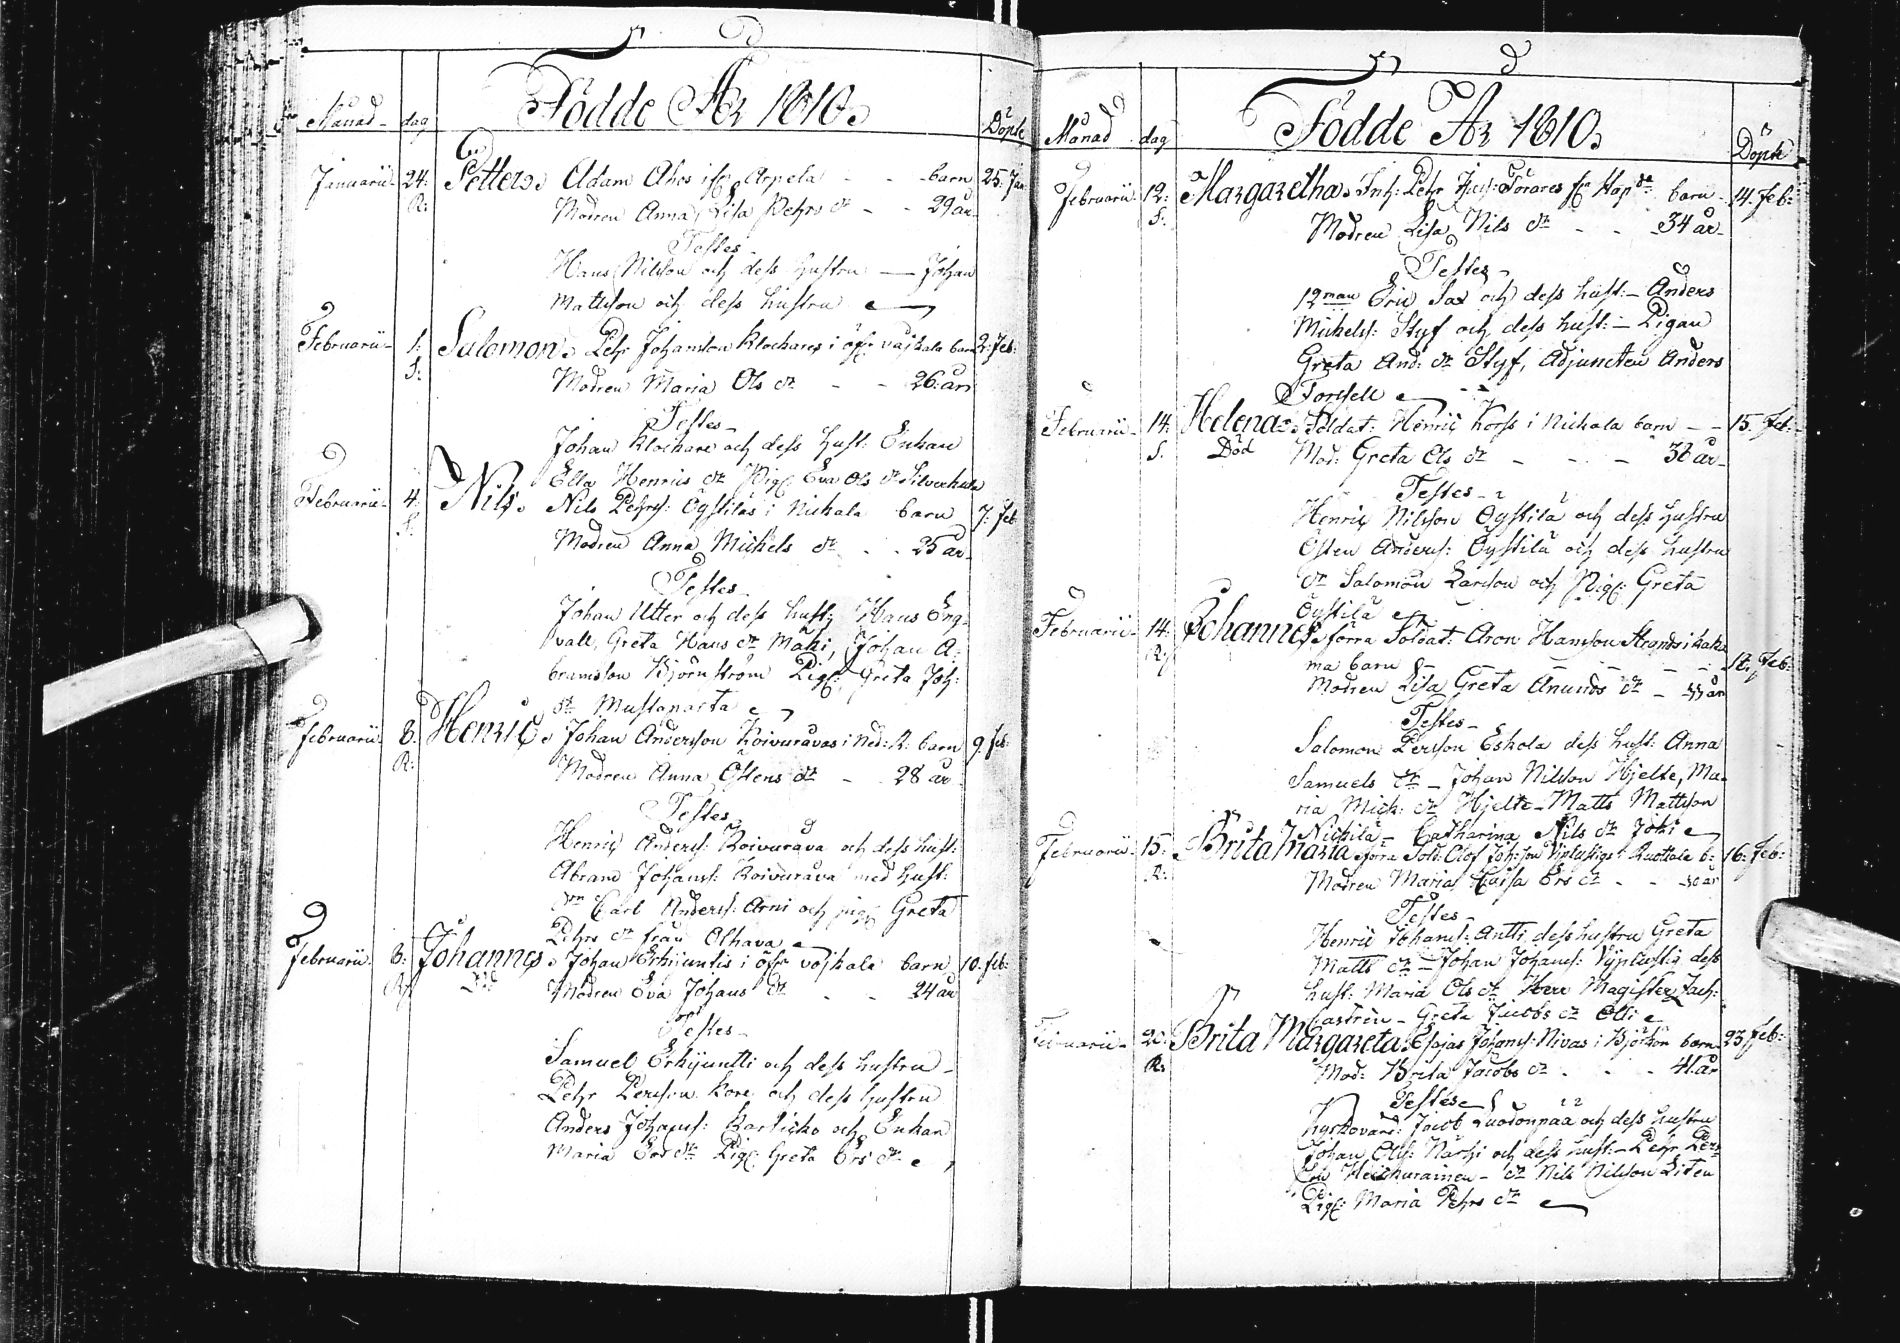 Födde År 1810.
Månad dag Döpte
Januarii 24: Petter. Adam Ahos i Arpela barn 25. Jan:
R: Modren Anna Lisa Pehrs dr 29 år
Testes
Hans Nilsson och dess hustru Johan
Mattsson och dess hustru
Februarii 1: Salomon. Pehr Johansson Klockares i öfr vojkala barn 2. Feb:
S: Modren Maria Ols dr 26 år
Testes
Johan Klockare och dess hust: Enkan
Ella Henrics dr Pig: Eva Ols dr Silverhula
Februarii 4: Nils. Nils Pehrs: Öystilas i Nickala barn 7. Feb
S: Modren Anna Mickels dr 25 år
Testes
Johan Utter och dess hust: Hans Eng-
vall, Greta Hans dr Mäki, Johan A-
bramsson Björnström Pig: Greta Joh:
dr Mustaparta
Februarii 8: Henric. Johan Andersson Koivuravas i Ned: R: barn 9. feb:
R: Modren Anna Östens dr 28 år
Testes
Henric Anders: Koivurava och dess hust:
Abram Johans: Koivurava med hust:
Carl Anders: Arni och pig: Greta
Pehrs dr från Olhava
Februarii 8: Johannes. Johan Erkijuntis i öfr vojkala barn 10. feb:
R: Död Modren Eva Johans dr 24 år
Testes
Samuel Erkijuntti och dess hustru
Pehr Persson Kore och dess hustru
Anders Johans: och Enkan
Maria Ers dr Pig: Greta Ers dr
Födde År 1810.
Månad dag Döpte
Februarii 12: Margaretha. Pehr barn 14. Feb:
S: Modren Lisa Nils dr 34 år
Testes
12man Eric Sax och dess hust: Anders
Mickels: Styf och dess hust: Pigan
Greta And: dr Styf, Adjuncten Anders
Forssell
Februarii 14: Helena. Soldat: Henric Korss i Nickala barn 15. Feb:
S. Död Mod: Greta Ols dr 38 år
Testes
Henric Nilsson Öystilä och dess hustru
Östen Anders: Öystilä och dess hustru
dr Salomon Larsson och Pig: Greta
Öystilä
Februarii 14: Johannes. förra Soldat: Aron Hansson i Kaka
R: ma barn Feb:
Modren Lisa Greta Anunds dr år
Testes
Salomon Persson Eskola dess hust: Anna
Samuels dr Johan Nilsson Hjelte, Ma-
ria Mick: dr Hjelte Matts Mattsson
Nickila Catharina Nils dr Joki
Februarii 15: Brita Maria förra Sold: Olof Joh:son Ruottala b: 16. Feb:
R: Modren Maria Caisa Ers dr år
Testes
Henric Johans: Antti dess hustru Greta
Matts dr Johan Johans: dess
hust: Maria Ols dr Herr Magister Zach:
Castrén Greta Jacobs dr Olli
Februarii Brita Margareta. Esajas Johans: Nivas i Björkön barn 23. Feb:
R: Mod: Brita Jacobs dr 41 år
Testes
Kyrkovärd: Jacob Luodonpää och dess hustru
Johan Ols: Närhi och dess hust: Pehr Pers
son dr Nils Nilsson Liten
Pig: Maria Pehrs dr